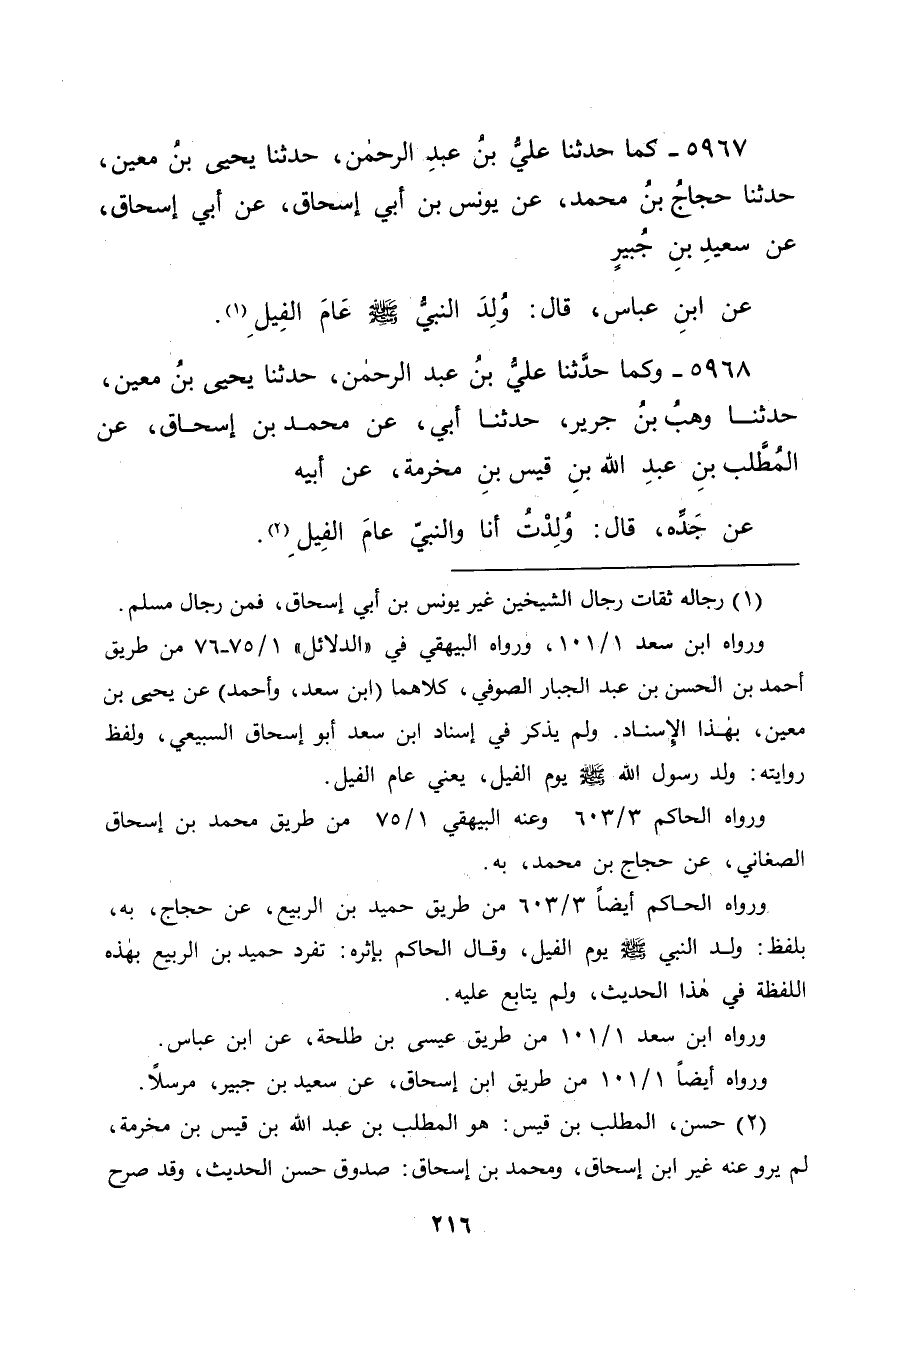 ٥٩٦٧ ـ كما حدثنا عليُّ بنُ عبدِ الرحمٰن، حدثنا يحيى بنُ معين،
حدثنا حجاجُ بنُ محمد، عن يونس بن أبي إسحاق، عن أبي إسحاق،
عن سعيدِ بنِ جُبيرٍ
عن ابنِ عباس، قال: وُلِدَ النبيُّ ﷺ عَامَ الفِيلِ(١).
٥٩٦٨ ـ وكما حدَّثنا عليُّ بنُ عبد الرحمٰن، حدثنا يحيى بنُ معين،
حدثنا وهبُ بنُ جرير، حدثنا أبي، عن محمد بن إسحاق، عن
المُطَّلب بنِ عبدِ الله بنِ قيس بنِ مخرمة، عن أبيه
عن جَدِّه، قال: وُلِدْتُ أنا والنبيّ عامَ الفِيلِ(٢).
(١) رجاله ثقات رجال الشيخين غير يونس بن أبي إسحاق، فمن رجال مسلم.
ورواه ابن سعد ١٠١/١، ورواه البيهقي في «الدلائل» ٧٥/١ـ٧٦ من طريق
أحمد بن الحسن بن عبد الجبار الصوفي، كلاهما (ابن سعد، وأحمد) عن يحيى بن
معين، بهٰذا الإسناد. ولم يذكر في إسناد ابن سعد أبو إسحاق السبيعي، ولفظ
روايته: ولد رسول الله ﷺ يوم الفيل، يعني عام الفيل.
ورواه الحاكم ٦٠٣/٣ وعنه البيهقي ٧٥/١ من طريق محمد بن إسحاق
الصغاني، عن حجاج بن محمد، به.
ورواه الحاكم أيضاً ٦٠٣/٣ من طريق حميد بن الربيع، عن حجاج، به،
بلفظ: ولد النبي ﷺ يوم الفيل، وقال الحاكم بإثره: تفرد حميد بن الربيع بهٰذه
اللفظة في هٰذا الحديث، ولم يتابع عليه.
ورواه ابن سعد ١٠١/١ من طريق عيسى بن طلحة، عن ابن عباس.
ورواه أيضاً ١٠١/١ من طريق ابن إسحاق، عن سعيد بن جبير، مرسلاً.
(٢) حسن، المطلب بن قيس: هو المطلب بن عبد الله بن قيس بن مخرمة،
لم يرو عنه غير ابن إسحاق، ومحمد بن إسحاق: صدوق حسن الحديث، وقد صرح
٢١٦